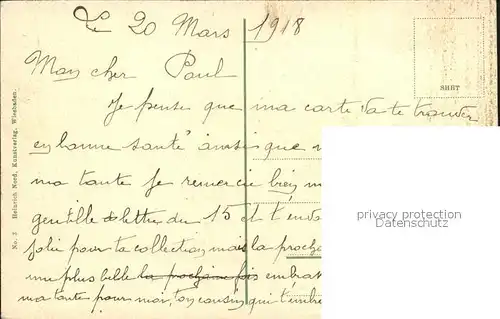 Le 20 Mars 1918
Mon cher Paul
SHBT
Je pense que ma carte va te trouver
en bonne santé ainsi que
ma tante Je remercie bien
gentille lettre du 15 et t'en
jolie pour ta collection mais la proch
une plus belle la prochaine fois embras
ma tante pour moi, ton cousin qui t'embr
No. 3 Heinrich Nord, Kunstverlag, Wiesbaden.
privacy protection
Datenschutz